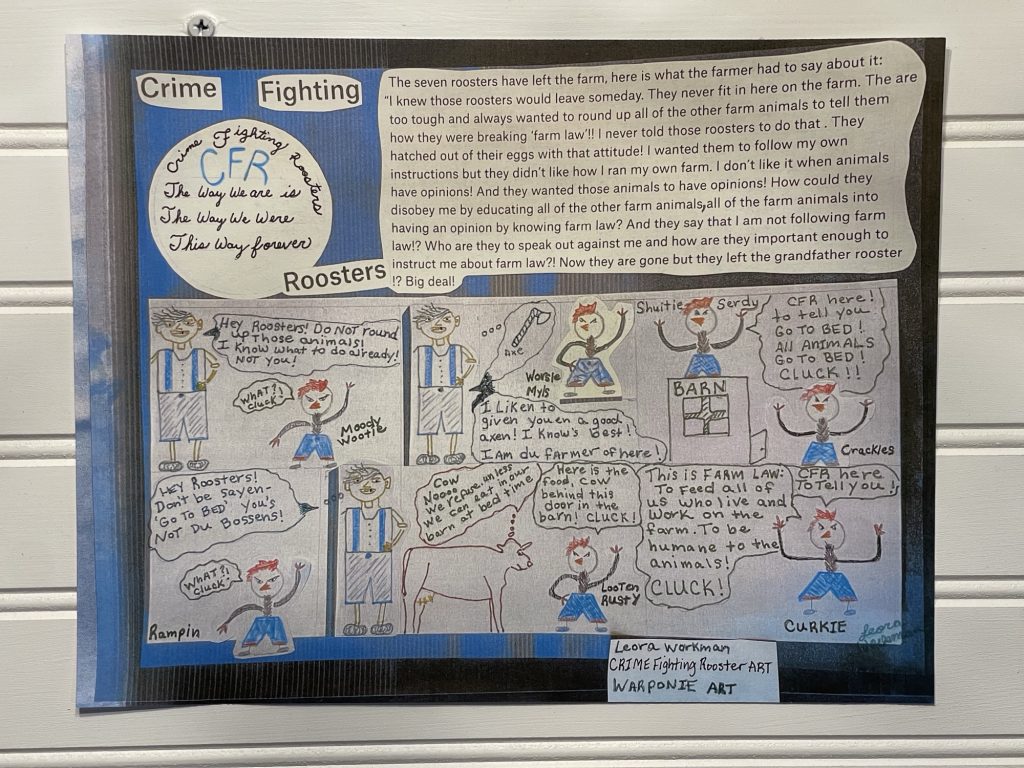 Crime Fighting
Crime Fighting Roosters
CFR
The Way We are is
The Way We Were
This Way forever
Roosters
The seven roosters have left the farm, here is what the farmer had to say about it:
"I knew those roosters would leave someday. They never fit in here on the farm. The are
too tough and always wanted to round up all of the other farm animals to tell them
how they were breaking 'farm law'!! I never told those roosters to do that . They
hatched out of their eggs with that attitude! I wanted them to follow my own
instructions but they didn't like how I ran my own farm. I don't like it when animals
have opinions! And they wanted those animals to have opinions! How could they
disobey me by educating all of the other farm animals,all of the farm animals into
having an opinion by knowing farm law? And they say that I am not following farm
law!? Who are they to speak out against me and how are they important enough to
instruct me about farm law?! Now they are gone but they left the grandfather rooster
!? Big deal!
Hey Roosters! Do NOT round
up Those animals!
I Know what to do already!
NOT you!
WHAT?!
CLUCK!
Moody
Wootie
AXE
Worsie
Myls
I Liken to
given you en a good
axen! I Know's best!
I Am du farmer of here!
Shuitie Serdy
BARN
CFR here!
to tell you
GO TO BED!
All ANIMALS
GO TO BED!
CLUCK!!
Crackles
HEY Roosters!
Don't be sayen-
'Go To BED' you's
Not Du Bossens!
WHAT?!
CLUCK!
Rampin
COW
Noooo
we refuse unless
we can eat in our
barn at bed time
Here is the
food, cow
behind this
door in the
barn! CLUCK!
Looten
Rusty
This is FARM LAW:
To feed all of
us who live and
work on the
farm. To be
humane to the
animals!
CLUCK!
CFR here
To Tell you!
CURKIE
Leora
Workman
Leora Workman
CRIME Fighting Rooster ART
WARPONIE ART